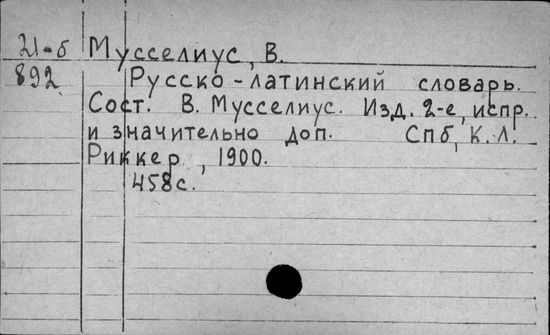 21-б Мусселиус, В.
892 Русско-латинский словарь.
Сост. В. Мусселиус. Изд. 2-е, испр.
и значительно доп. Спб, К.Л.
Риккер, 1900.
458с.